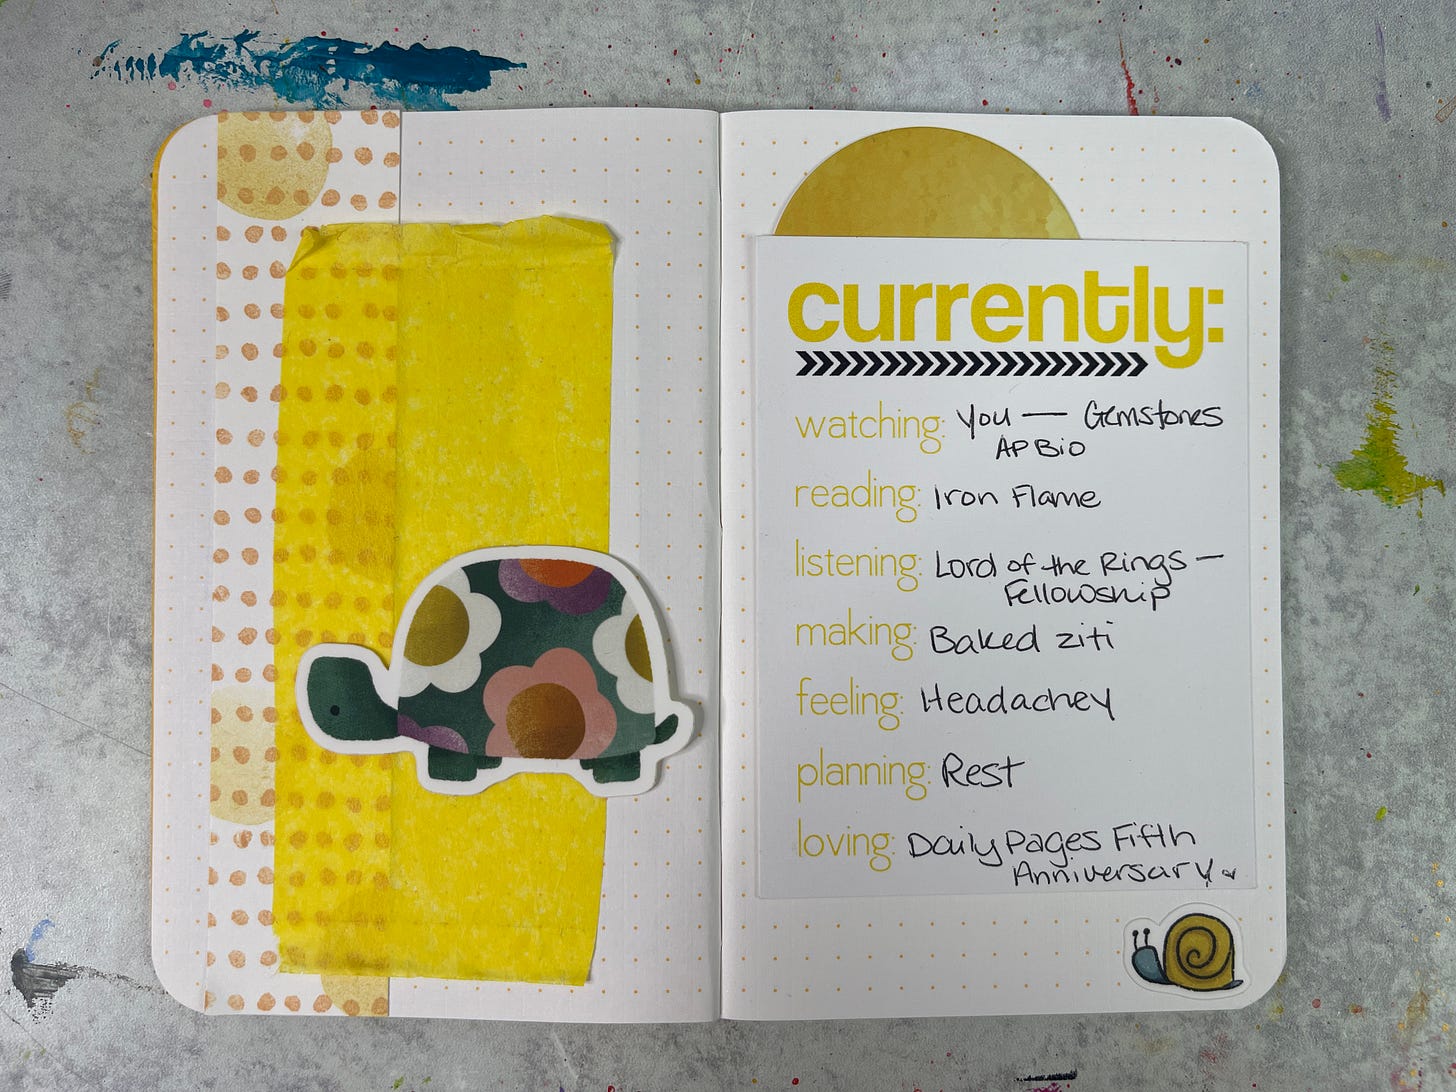 currently:
watching: You — Gemstones
AP Bio
reading: Iron Flame
listening: Lord of the Rings —
Fellowship
making: Baked ziti
feeling: Headachey
planning: Rest
loving: Daily Pages Fifth
Anniversary